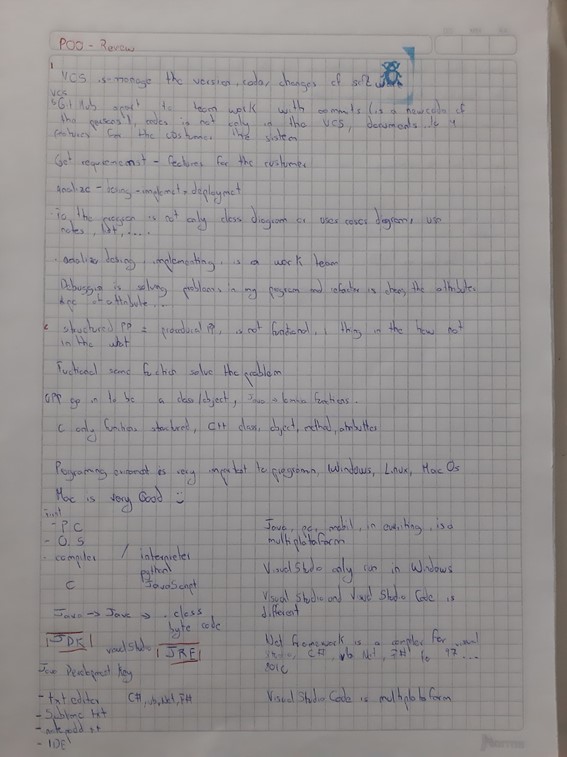 POO - Review
VCS is manage the version, code, changes of soft
VCS
Git Hub to team work with commits (is a new code of
the person), codes is not only in the VCS, documents
features for the costumer the sistem
Get requirements - features for the custumer
analize - desing - implement - deployment
is the program is not only class diagram or user cases diagrams, use
notes, txt, ....
- analize desing, implementing, is a work team
Debugging is solving problems in my program and refactor is the attributes
type of attribute...
structured PP = procedural PP, is not functional, thing in the how not
in the what
Fuctional some function solve the problem
OPP go in to be a class/object, Java = lamda functions.
C only functions structured, C++ class, object, method, attributes
Programing is very important to program, Windows, Linux, Mac Os
Mac is very Good
- PC
- O.S
- compiler / interpreter
python
C JavaScript
Java → Javac → .class
byte code
JDK visual Studio JRE
Java Development Key
- txt editor C#, vb.Net, F#
- Sublime txt
- notepad
- IDE
Java, pc, mobil, in everiting, is a
multiplataform
Visual Stdio only run in Windows
Visual Studio and Visual Studio Code is
different
Net framework is a compiler for visual
C#, vb Net, F#
Visual Studio Code is multiplataform
Norma